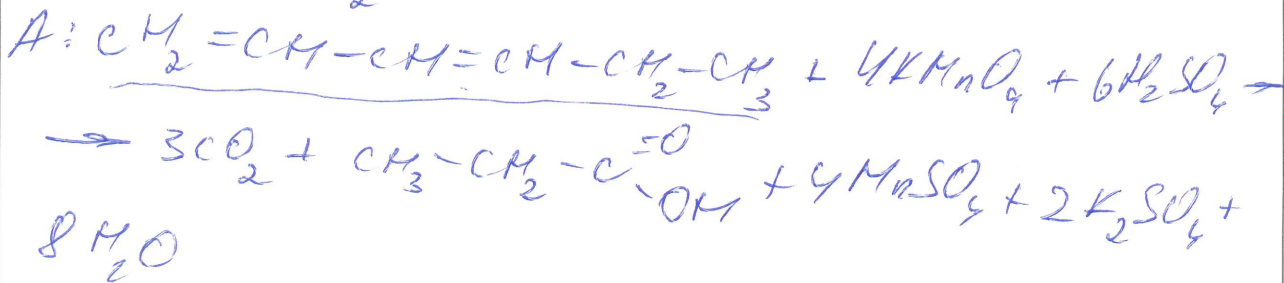 A: CH₂=CH-CH=CH-CH₂-CH₃ + 4KMnO₄ + 6H₂SO₄ →
→ 3CO₂ + CH₃-CH₂-C=O-OH + 4MnSO₄ + 2K₂SO₄ +
8H₂O